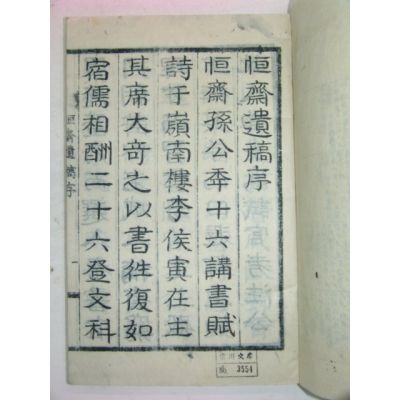 恒齋遺稿序
恒齋孫公年十六講書賦
詩于嶺南樓李侯寅在主
其席大奇之以書徃復如
宿儒相酬二十六登文科
恒齋遺稿序
一
3554